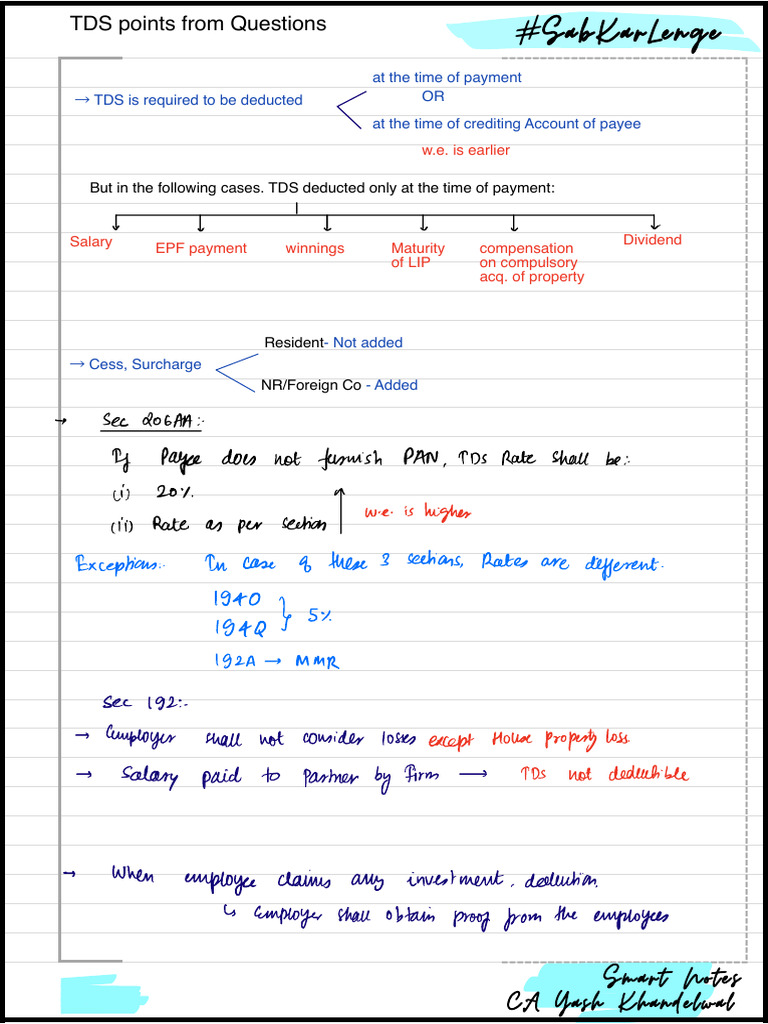 TDS points from Questions
#SabKarLenge
at the time of payment
→ TDS is required to be deducted
OR
at the time of crediting Account of payee
w.e. is earlier
But in the following cases. TDS deducted only at the time of payment:
Salary
EPF payment
winnings
Maturity
of LIP
compensation
on compulsory
acq. of property
Dividend
Resident- Not added
→ Cess, Surcharge
NR/Foreign Co - Added
→ Sec 206AA:-
If Payee does not furnish PAN, TDS Rate shall be:
(i) 20%
(ii) Rate as per section
w.e. is higher
Exceptions:- In case of these 3 sections, Rates are different.
194O
194Q
5%
192A → MMR
Sec 192:-
→ Employer shall not consider loses except House property loss
→ Salary paid to Partner by Firm → TDS not deductible
→ When employee claims any investment, deduction,
↳ Employer shall obtain proof from the employees
Smart Notes
CA Yash Khandelwal